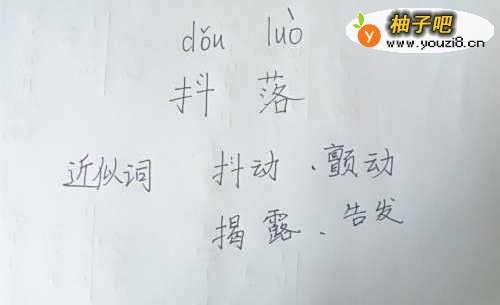 柚子吧
www.youzi8.cn
dǒu luò
抖落
近似词 抖动、颤动
揭露、告发